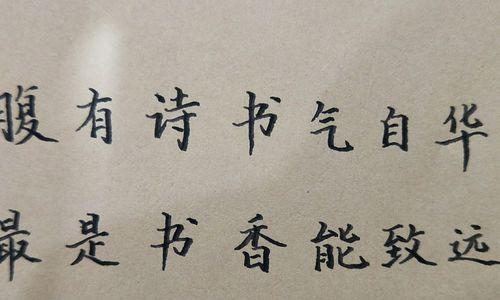 腹有诗书气自华
最是书香能致远